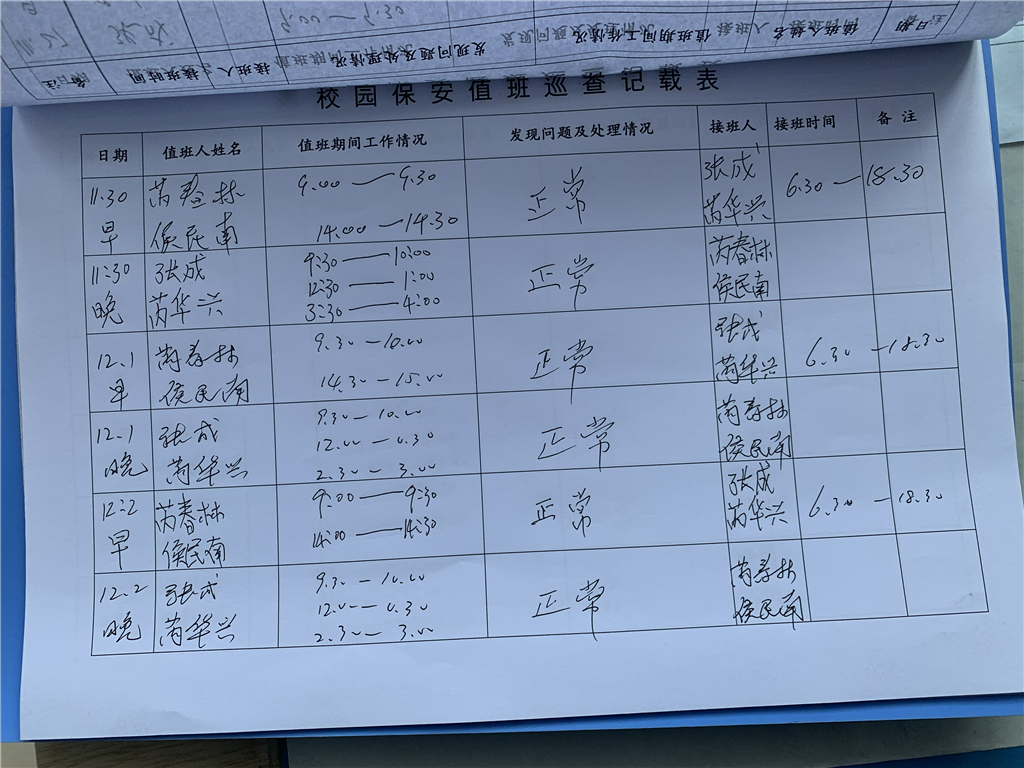 校园保安值班巡查记载表
日期 值班人姓名 值班期间工作情况 发现问题及处理情况 接班人 接班时间 备注
11:30 芮春林 9.00—9.30 正常 张成 6.30—18.30
早 侯民南 14:00—14:30 芮华兴
11:30 张成 9:30—10:00 正常 芮春林
晚 芮华兴 12:30—1:00 侯民南
3:30—4:00
12.1 芮春林 9.30—10.00 正常 张成 6.30—18.30
早 侯民南 14.30—15.00 芮华兴
12.1 张成 9.30—10.00 正常 芮春林
晚 芮华兴 12.00—0.30 侯民南
2.30—3.00
12:2 芮春林 9:00—9:30 正常 张成 6.30—18.30
早 侯民南 14:00—14:30 芮华兴
12.2 张成 9.30—10.00 正常 芮春林
晚 芮华兴 12.00—0.30 侯民南
2.30—3.00